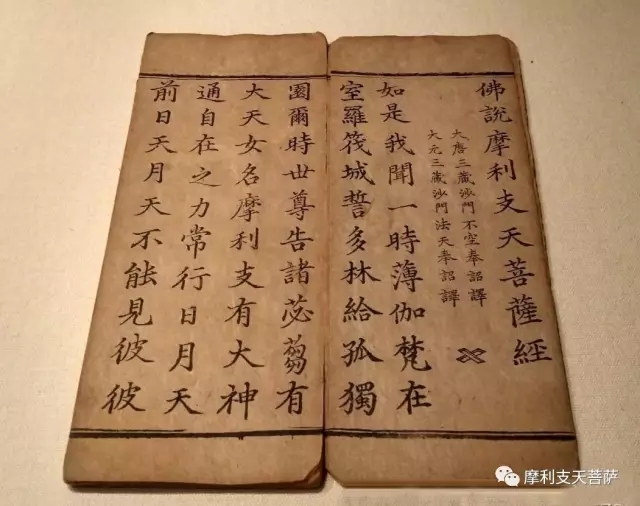 佛説摩利支天菩薩經
大唐三藏沙門不空奉詔譯
大元三藏沙門法天奉詔譯
如是我聞一時薄伽梵在
室羅筏城誓多林給孤獨
園爾時世尊告諸苾蒭有
大天女名摩利支有大神
通自在之力常行日月天
前日天月天不能見彼彼
摩利支天菩萨